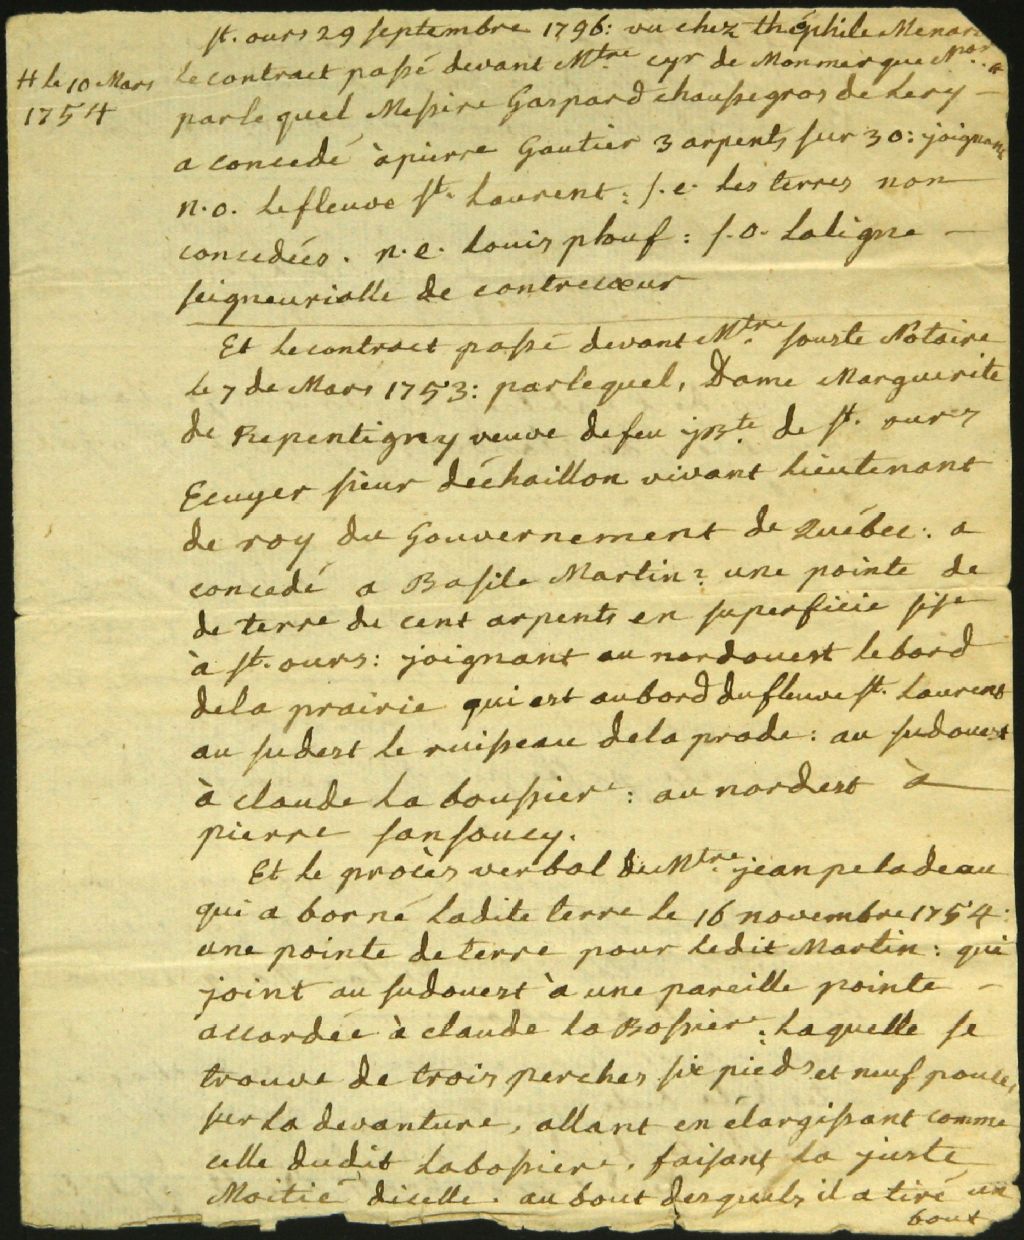 st. ours 29 septembre 1796: vu chez théophile Menar
# le 10 Mars
1754
le contract passé devant Mtre cyr de Monmerque Nore #
par le quel Messire Gaspard chaussegros de Lery —
a concedé à pierre Gautier 3 arpents sur 30: joignant
n.o. le fleuve st. Laurent: s.e. les terres non
concedées. n.e. Louis plouf: s.o. La ligne —
seigneurialle de contrecœur
Et le contract passé devant Mtre souste Notaire
le 7 de Mars 1753: par lequel, Dame Marguerite
de Repentigny veuve de feu jBte de st. ours
Ecuyer sieur déchaillon vivant Lieutenant
de roy du Gouvernement de Québec: a
concedé a Basile Martin: une pointe de
de terre de cent arpents en superficie sise
à st. ours: joignant au nordouest le bord
de la prairie qui est au bord du fleuve st. Laurent
au sudest le ruisseau de la prade: au sudouest
à claude La boussiere: au nordest à —
pierre sansoucy.
Et le procès verbal du Mtre jean peladeau
qui a borné Ladite terre le 16 novembre 1754:
une pointe de terre pour ledit Martin: qui
joint au sudouest à une pareille pointe —
accordée à claude La Bossiere: Laquelle se
trouve de trois perches six pieds et neuf pouces
sur La devanture, allant en élargissant comme
celle dudit Labossiere, faisant La juste
Moitié dicelle. au bout desquels il a tiré un
bout